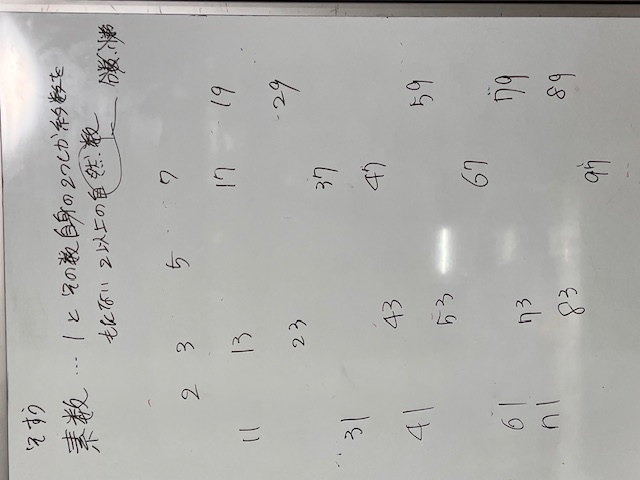 そすう
素数 … 1とその数自身の2つしか約数を
もたない 2以上の自然数
2 3 5 7
11 13 17 19
23 29
31 37
41 43 47
53 59
61 67
71 73 79
83 89
97